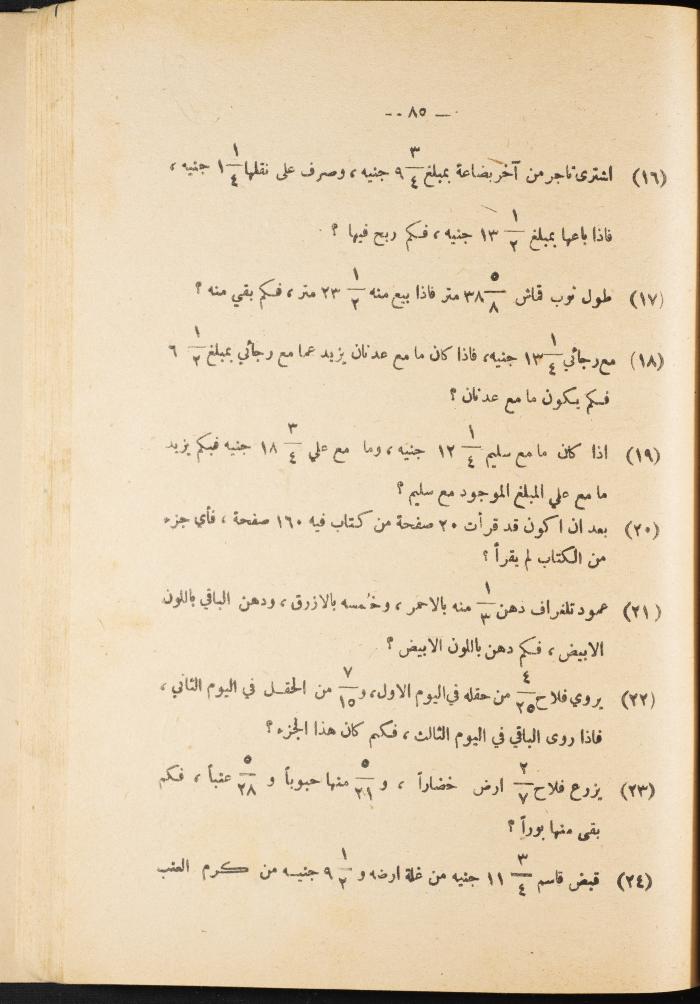 — ٨٥ —
(١٦) اشترى تاجر من آخر بضاعة بمبلغ ٩ ٣/٤ جنيه ، وصرف على نقلها ١ ١/٤ جنيه ،
فاذا باعها بمبلغ ١٣ ١/٢ جنيه ، فكم ربح فيها ؟
(١٧) طول ثوب قماش ٣٨ ٥/٨ متر فاذا بيع منه ٢٣ ١/٢ متر ، فكم بقي منه ؟
(١٨) مع رجائي ١٣ ١/٤ جنيه ، فاذا كان ما مع عدنان يزيد عما مع رجائي بمبلغ ٦ ١/٢
فكم يكون ما مع عدنان ؟
(١٩) اذا كان ما مع سليم ١٢ ١/٤ جنيه ، وما مع علي ١٨ ٣/٤ جنيه فبكم يزيد
ما مع علي المبلغ الموجود مع سليم ؟
(٢٠) بعد ان اكون قد قرأت ٢٠ صفحة من كتاب فيه ١٦٠ صفحة ، فأي جزء
من الكتاب لم يقرأ ؟
(٢١) عمود تلغراف دهن ١/٣ منه بالاحمر ، وخُمسه بالازرق ، ودهن الباقي باللون
الابيض ، فكم دهن باللون الابيض ؟
(٢٢) يروي فلاح ٤/٢٥ من حقله في اليوم الاول ، و ٧/١٥ من الحقل في اليوم الثاني ،
فاذا روى الباقي في اليوم الثالث ، فكم كان هذا الجزء ؟
(٢٣) يزرع فلاح ٢/٧ ارض خضاراً ، و ٥/٢١ منها حبوباً و ٥/٢٨ عقباً ، فكم
بقى منها بوراً ؟
(٢٤) قبض قاسم ١١ ٣/٤ جنيه من غلة ارضه و ٩ ١/٢ جنيه من كرم العنب